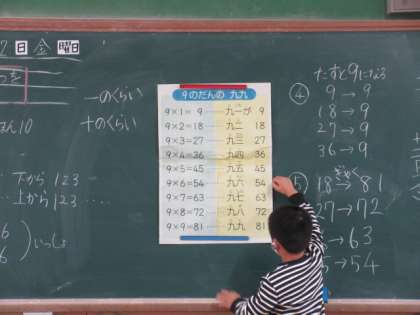 2日金曜日
一のくらい
十のくらい
下から123
上から123
いっしょ
9のだんの九九
9×1= 9 九一が 9
9×2=18 九二 18
9×3=27 九三 27
9×4=36 九四 36
9×5=45 九五 45
9×6=54 九六 54
9×7=63 九七 63
9×8=72 九八 72
9×9=81 九九 81
たすと9になる
④ 9→9
18→9
27→9
36→9
⑤ 18→81
27→72
→63
→54